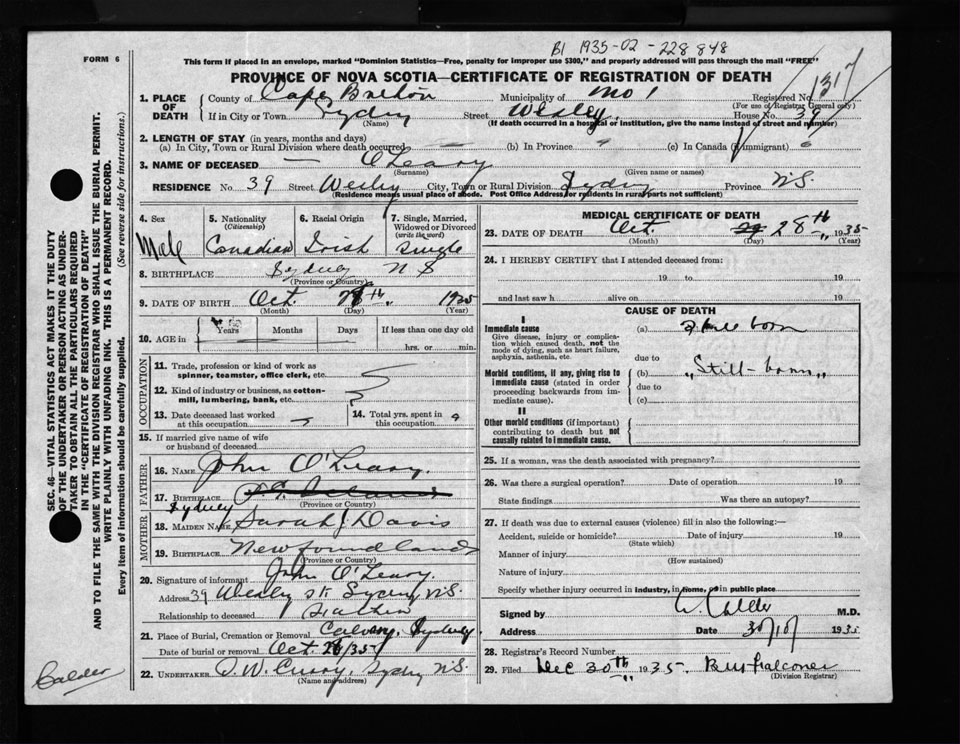 B1 1935-02-228848
FORM 6
This form if placed in an envelope, marked "Dominion Statistics—Free, penalty for improper use $300," and properly addressed will pass through the mail "FREE"
PROVINCE OF NOVA SCOTIA—CERTIFICATE OF REGISTRATION OF DEATH
1317
1. PLACE OF DEATH County of Cape Breton Municipality of No 1 Registered No. (For use of Registrar General only)
If in City or Town Sydney (Name) Street Wesley House No. 39
(If death occurred in a hospital or institution, give the name instead of street and number)
2. LENGTH OF STAY (in years, months and days)
(a) In City, Town or Rural Division where death occurred (b) In Province (c) In Canada (if immigrant)
3. NAME OF DECEASED — O'Leary
(Surname) (Given name or names)
RESIDENCE No. 39 Street Wesley City, Town or Rural Division Sydney Province N.S.
(Residence means usual place of abode. Post Office Address for residents in rural parts not sufficient)
4. Sex 5. Nationality (Citizenship) 6. Racial Origin 7. Single, Married, Widowed or Divorced (write the word)
Male Canadian Irish Single
8. BIRTHPLACE Sydney N S
(Province or Country)
9. DATE OF BIRTH Oct. 28th, 1935
(Month) (Day) (Year)
10. AGE in Years Months Days If less than one day old
hrs. or min.
OCCUPATION
11. Trade, profession or kind of work as spinner, teamster, office clerk, etc.
12. Kind of industry or business, as cotton-mill, lumbering, bank, etc.
13. Date deceased last worked at this occupation 14. Total yrs. spent in this occupation
15. If married give name of wife or husband of deceased
FATHER
16. NAME John O'Leary.
17. BIRTHPLACE P.E. Island
Sydney (Province or Country)
MOTHER
18. MAIDEN NAME Sarah J Davis
19. BIRTHPLACE Newfoundland
(Province or Country)
20. Signature of informant John O'Leary.
Address 39 Wesley St Sydney N.S.
Relationship to deceased Father
21. Place of Burial, Cremation or Removal Calvary, Sydney
Date of burial or removal Oct 28/35
22. UNDERTAKER Sydney N.S.
(Name and address)
Calder
MEDICAL CERTIFICATE OF DEATH
23. DATE OF DEATH Oct. 29 28th 1935
(Month) (Day) (Year)
24. I HEREBY CERTIFY that I attended deceased from:
19 to 19
and last saw h alive on 19
CAUSE OF DEATH
I
Immediate cause (a) Still born
Give disease, injury or complication which caused death, not the mode of dying, such as heart failure, asphyxia, asthenia, etc.
due to
Morbid conditions, if any, giving rise to immediate cause (stated in order proceeding backwards from immediate cause). (b) "Still-born"
due to
(c)
II
Other morbid conditions (if important) contributing to death but not causally related to immediate cause.
25. If a woman, was the death associated with pregnancy?
26. Was there a surgical operation? Date of operation 19
State findings Was there an autopsy?
27. If death was due to external causes (violence) fill in also the following:—
Accident, suicide or homicide? Date of injury 19
(State which)
Manner of injury
(How sustained)
Nature of injury
Specify whether injury occurred in Industry, in home, or in public place
Signed by Calder M.D.
Address Date 30/10/ 1935
28. Registrar's Record Number
29. Filed Dec 30th 1935 Falconer
(Division Registrar)
SEC. 46—VITAL STATISTICS ACT MAKES IT THE DUTY
OF THE UNDERTAKER OR PERSON ACTING AS UNDER-
TAKER TO OBTAIN ALL THE PARTICULARS REQUIRED
IN THE "CERTIFICATE OF REGISTRATION OF DEATH"
AND TO FILE THE SAME WITH THE DIVISION REGISTRAR WHO SHALL ISSUE THE BURIAL PERMIT.
WRITE PLAINLY WITH UNFADING INK. THIS IS A PERMANENT RECORD.
Every item of information should be carefully supplied. (See reverse side for instructions.)